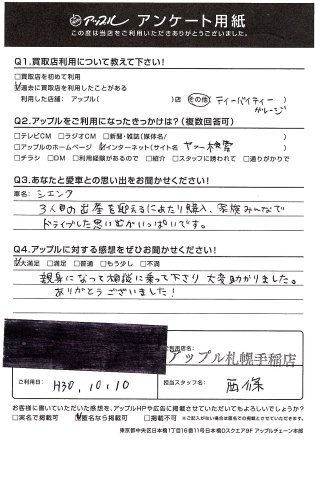 アップル アンケート用紙
この度は当店をご利用いただきありがとうございました。
Q1.買取店利用について教えて下さい!
□買取店を初めて利用
☑過去に買取店を利用したことがある
利用した店舗: アップル( )店 その他( ディーバイディーガレージ )
Q2.アップルをご利用になったきっかけは?(複数回答可)
□テレビCM □ラジオCM □新聞・雑誌(媒体名/ )
□アップルのホームページ ☑インターネット(サイト名 ヤフー検索 )
□チラシ □DM □利用経験があるので □紹介 □スタッフに誘われて □通りがかりで
Q3.あなたと愛車との思い出をお聞かせください!
車名: シエンタ
3人目の出産を迎えるにあたり購入、家族みんなで
ドライブした思い出がいっぱいです。
Q4.アップルに対する感想をぜひお聞かせください!
☑大満足 □満足 □普通 □もう少し □不満
親身になって相談に乗って下さり 大変助かりました。
ありがとうございました!
ご利用店名:
アップル札幌手稲店
ご利用日: H30.10.10
担当スタッフ名: 西條
お客様に書いていただいた感想を、アップルHPや広告に掲載させていただいてもよろしいでしょうか?
□実名で掲載可 ☑匿名なら掲載可 □掲載不可 ※ご記入がない場合は匿名での掲載とさせていただきます。
東京都中央区日本橋1丁目16番11号日本橋Dスクエア9F アップルチェーン本部